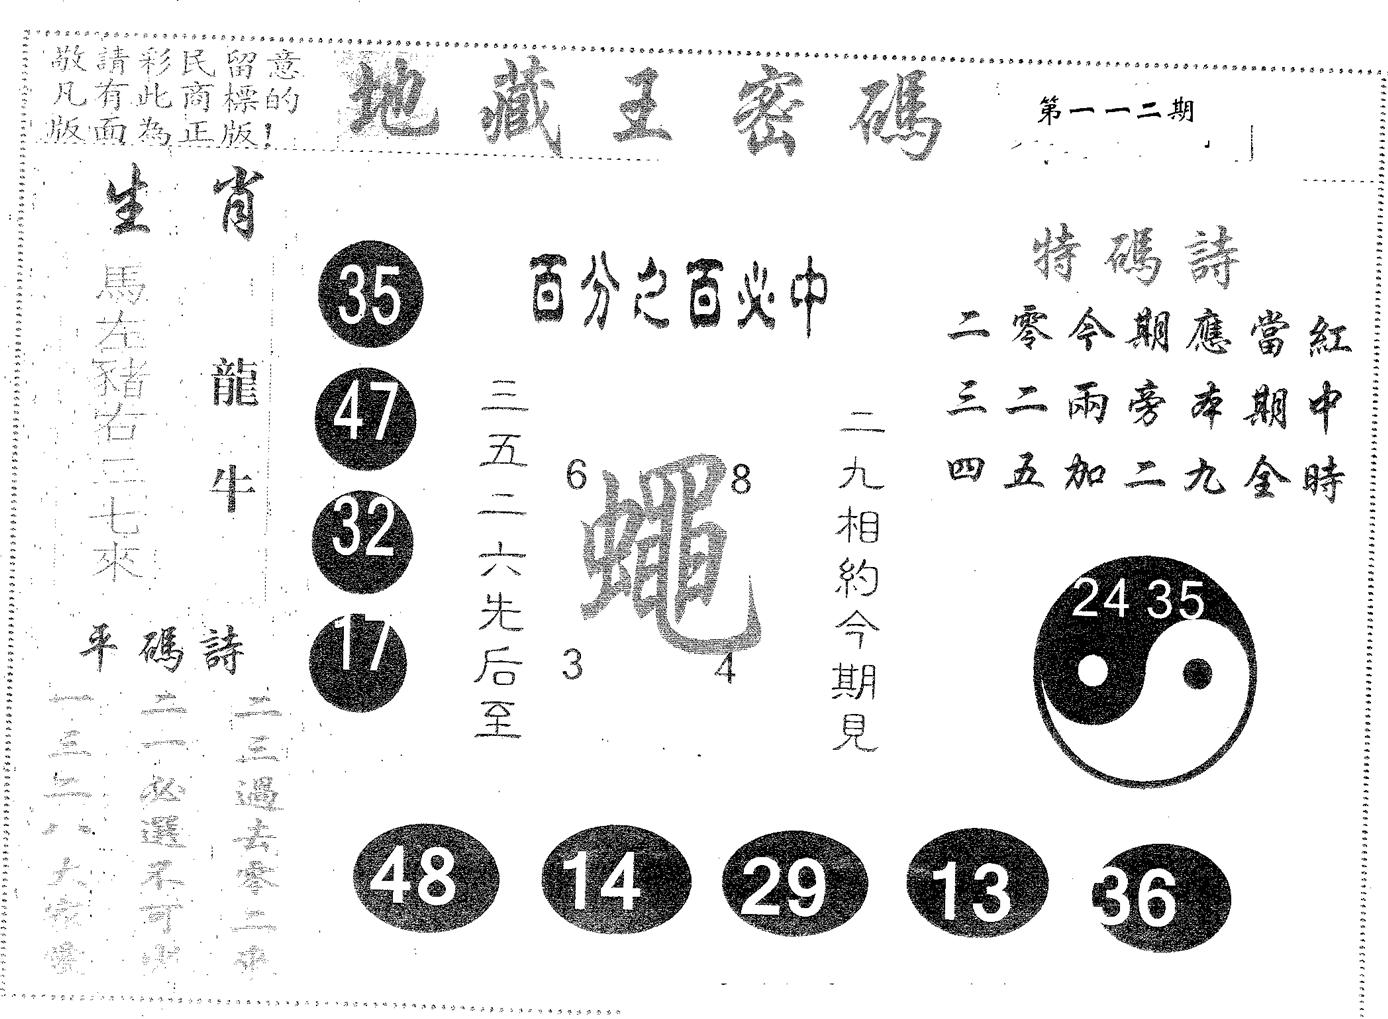 敬請彩民留意
凡有此商標的
版面為正版！
地藏王密碼
第一一二期
生肖
馬左豬右三七來
龍牛
35
47
32
17
百分之百必中
三五二六先后至
6
8
蠅
3
4
二九相約今期見
特碼詩
二零今期應當紅
三二兩旁本期中
四五加二九全時
24 35
平碼詩
一三二八大
二一必選不可
二三過去零二來
48
14
29
13
36